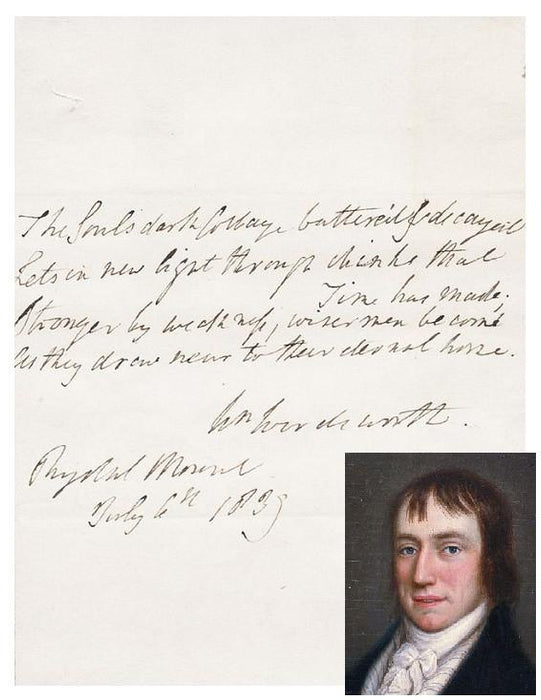 The Soul's dark Cottage batter'd & decayed
Lets in new light through chinks that
Time has made;
Stronger by weakness, wiser men become
As they draw near to their eternal home.
Wm Wordsworth.
Rydal Mount
July 6th 1839